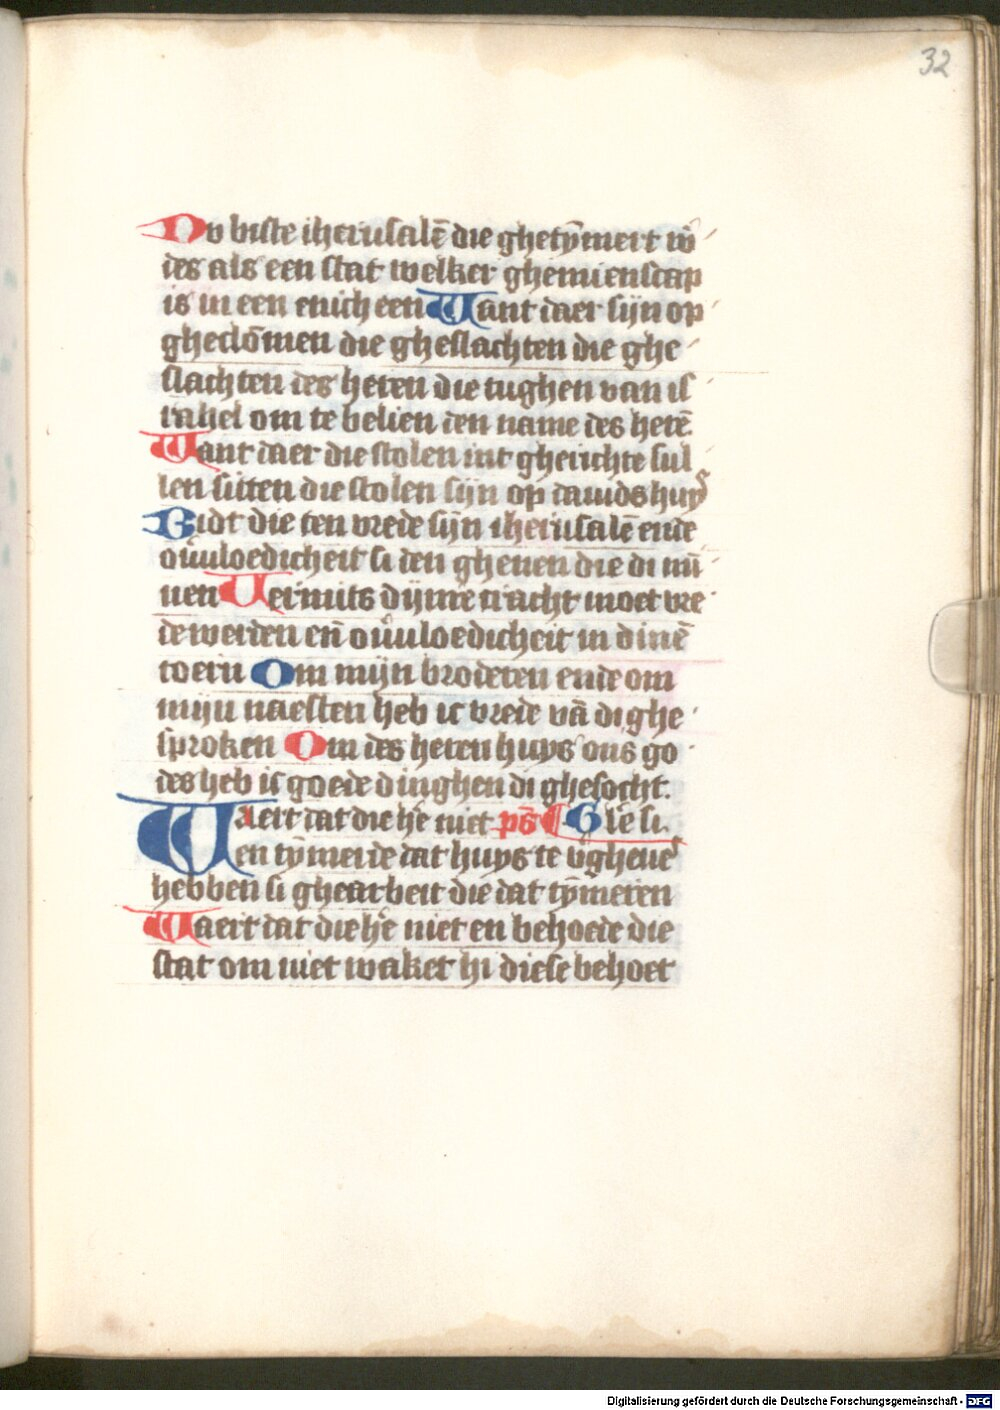 32
Du biste iherusalē die ghetȳmert w̄
des als een stat welker ghemienscap
is in een enich een Want daer sijn op
gheclōmen die gheslachten die ghe
slachten des heren die tughen van is
rahel om te belien den name des herē
Want daer die stolen int gherichte sul
len sitten die stolen sijn op dauids huys
Bidt die ten vrede sijn iherusalē ende
ouūloedicheit si den ghenen die di mī
nen Uermits dijnre cracht moet vre
de werden en̄ ouūloedicheit in dinē
toern Om mijn broderen ende om
mijn naesten heb ic vrede vā di ghe
sproken Om des heren huys ons go
des heb ic goede dinghen di ghesocht.
Waert dat die hē niet ps Glē si.
en tȳmerde dat huys te vgheue
hebben si ghearbeit die dat tȳmeren
Waert dat die hē niet en behoede die
stat om niet waket hi diese behoet
Digitalisierung gefördert durch die Deutsche Forschungsgemeinschaft - DFG